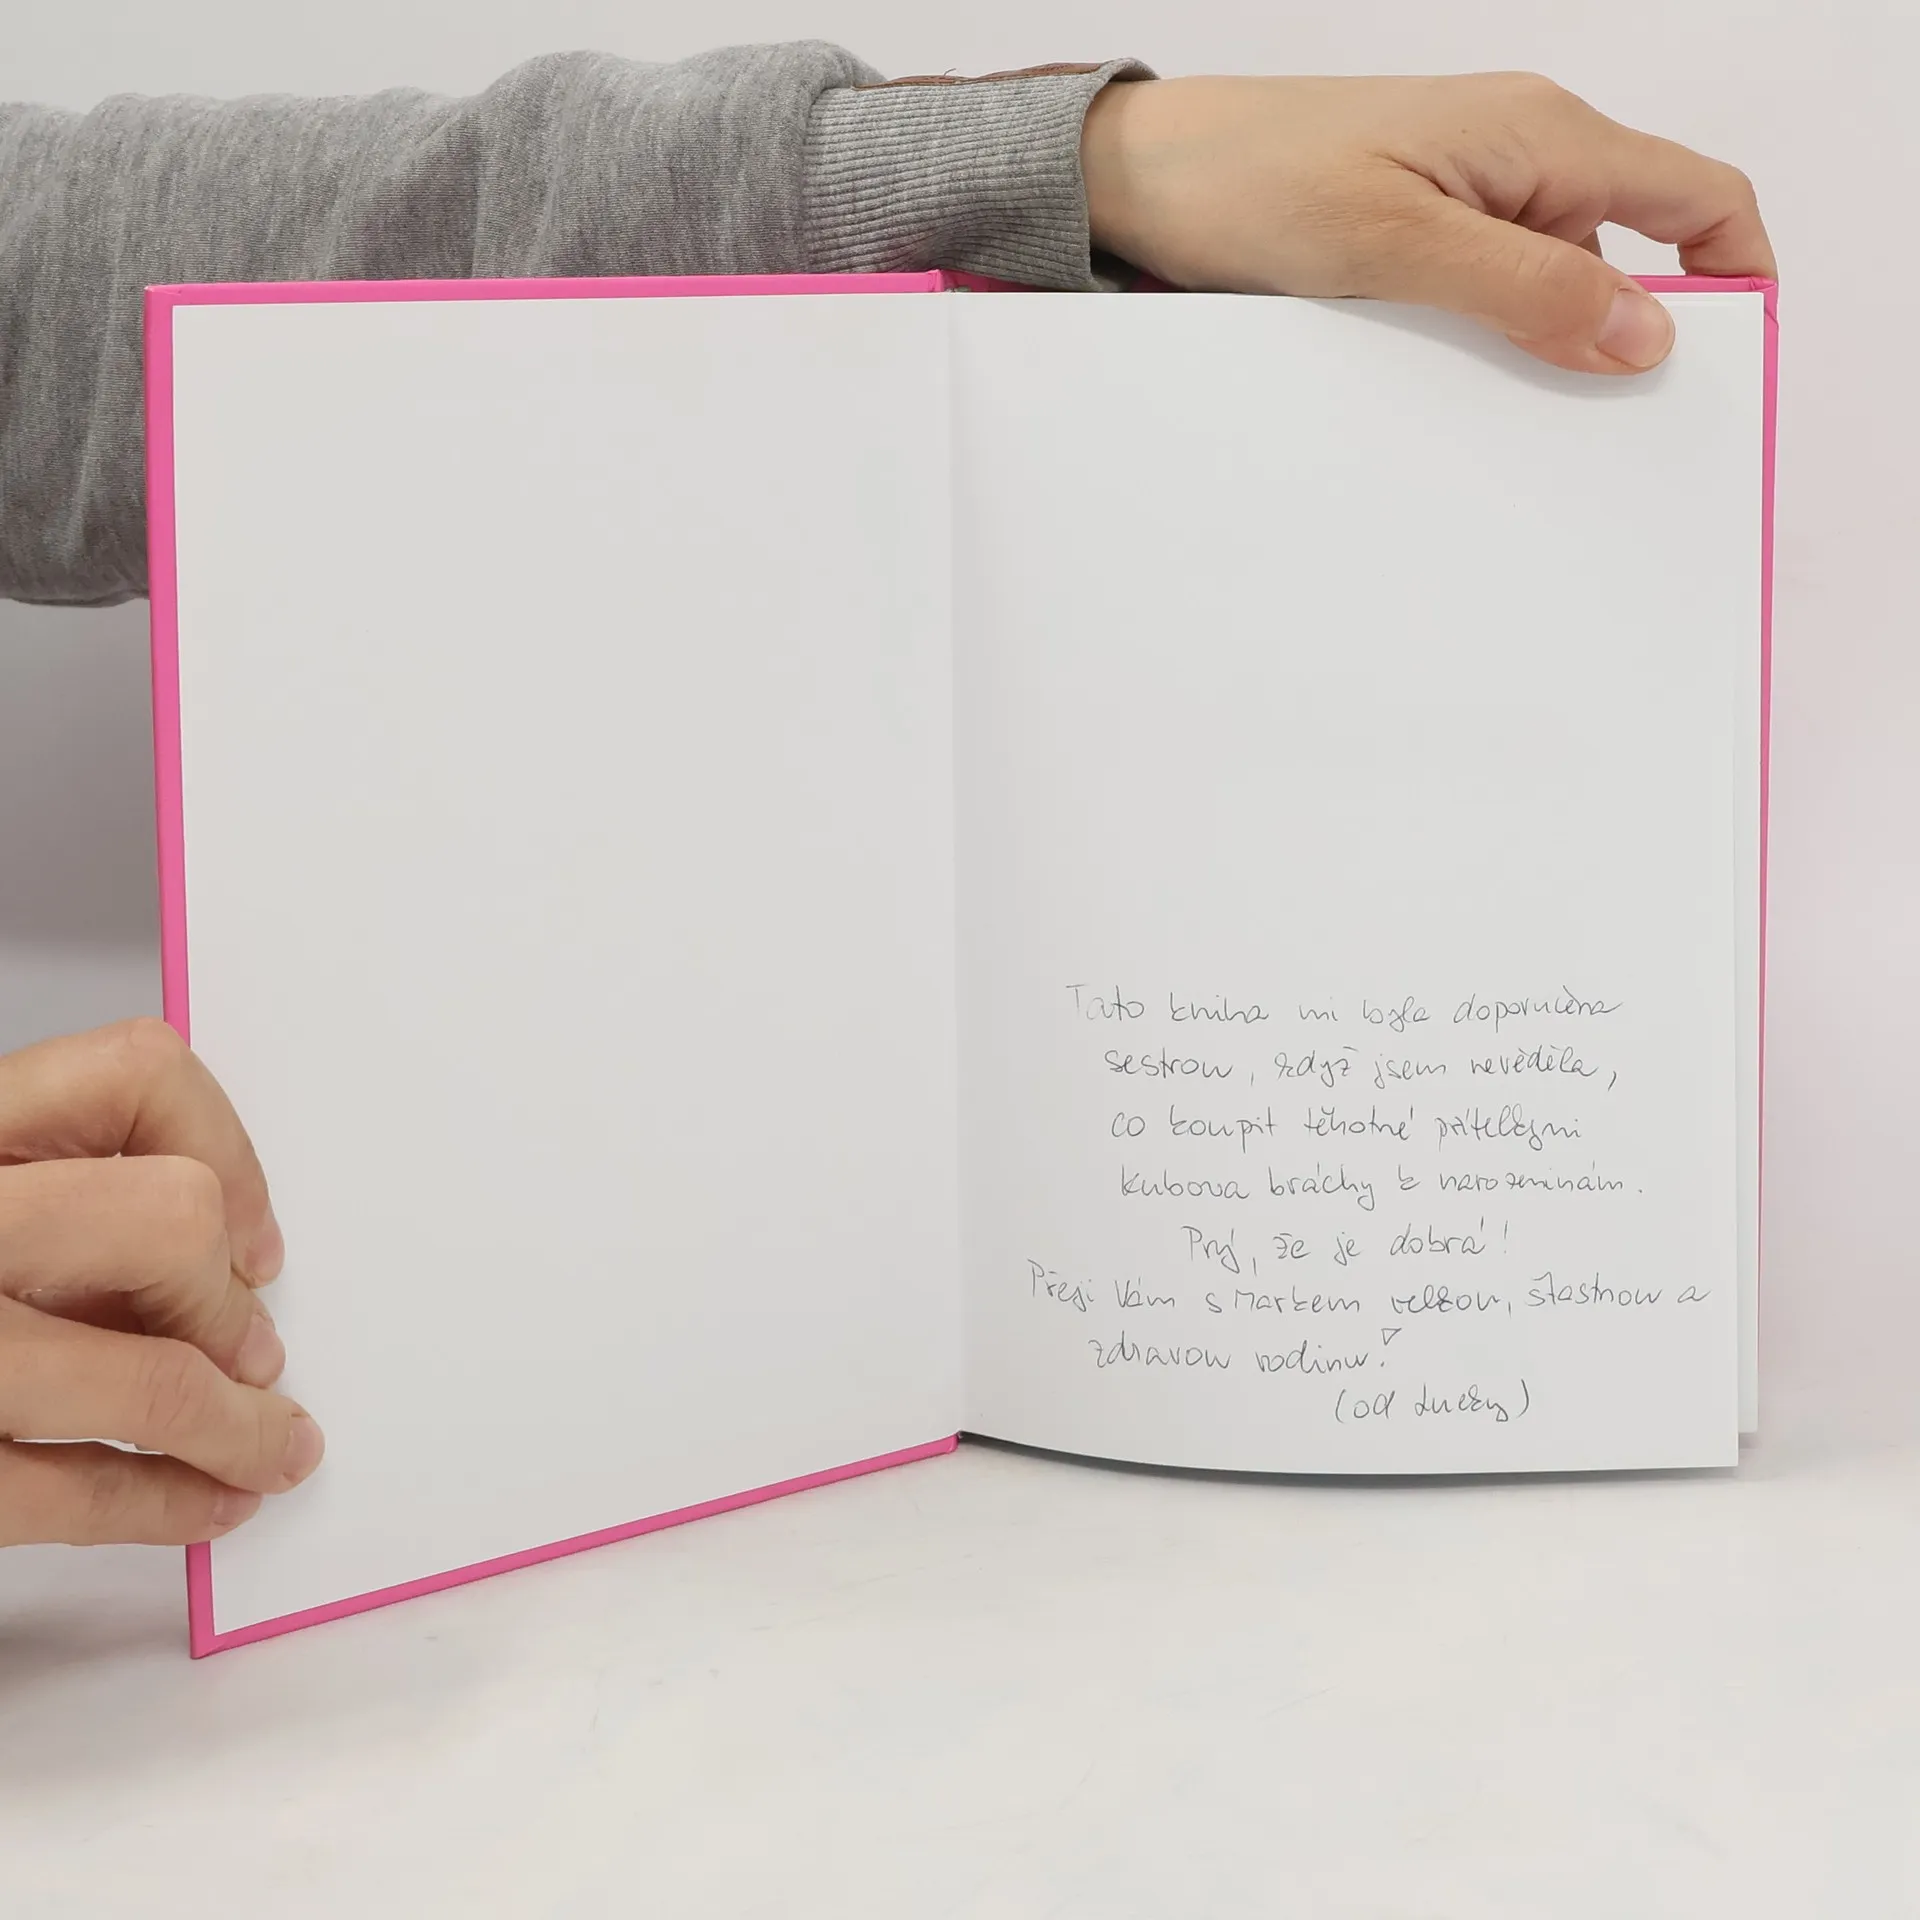 Tato kniha mi byla doporučena
sestrou, když jsem nevěděla,
co koupit těhotné přítelkyni
Kubova bráchy k narozeninám.
Prý, že je dobrá!
Přeji Vám s Markem velkou, šťastnou a
zdravou rodinu!
(od Lucky)